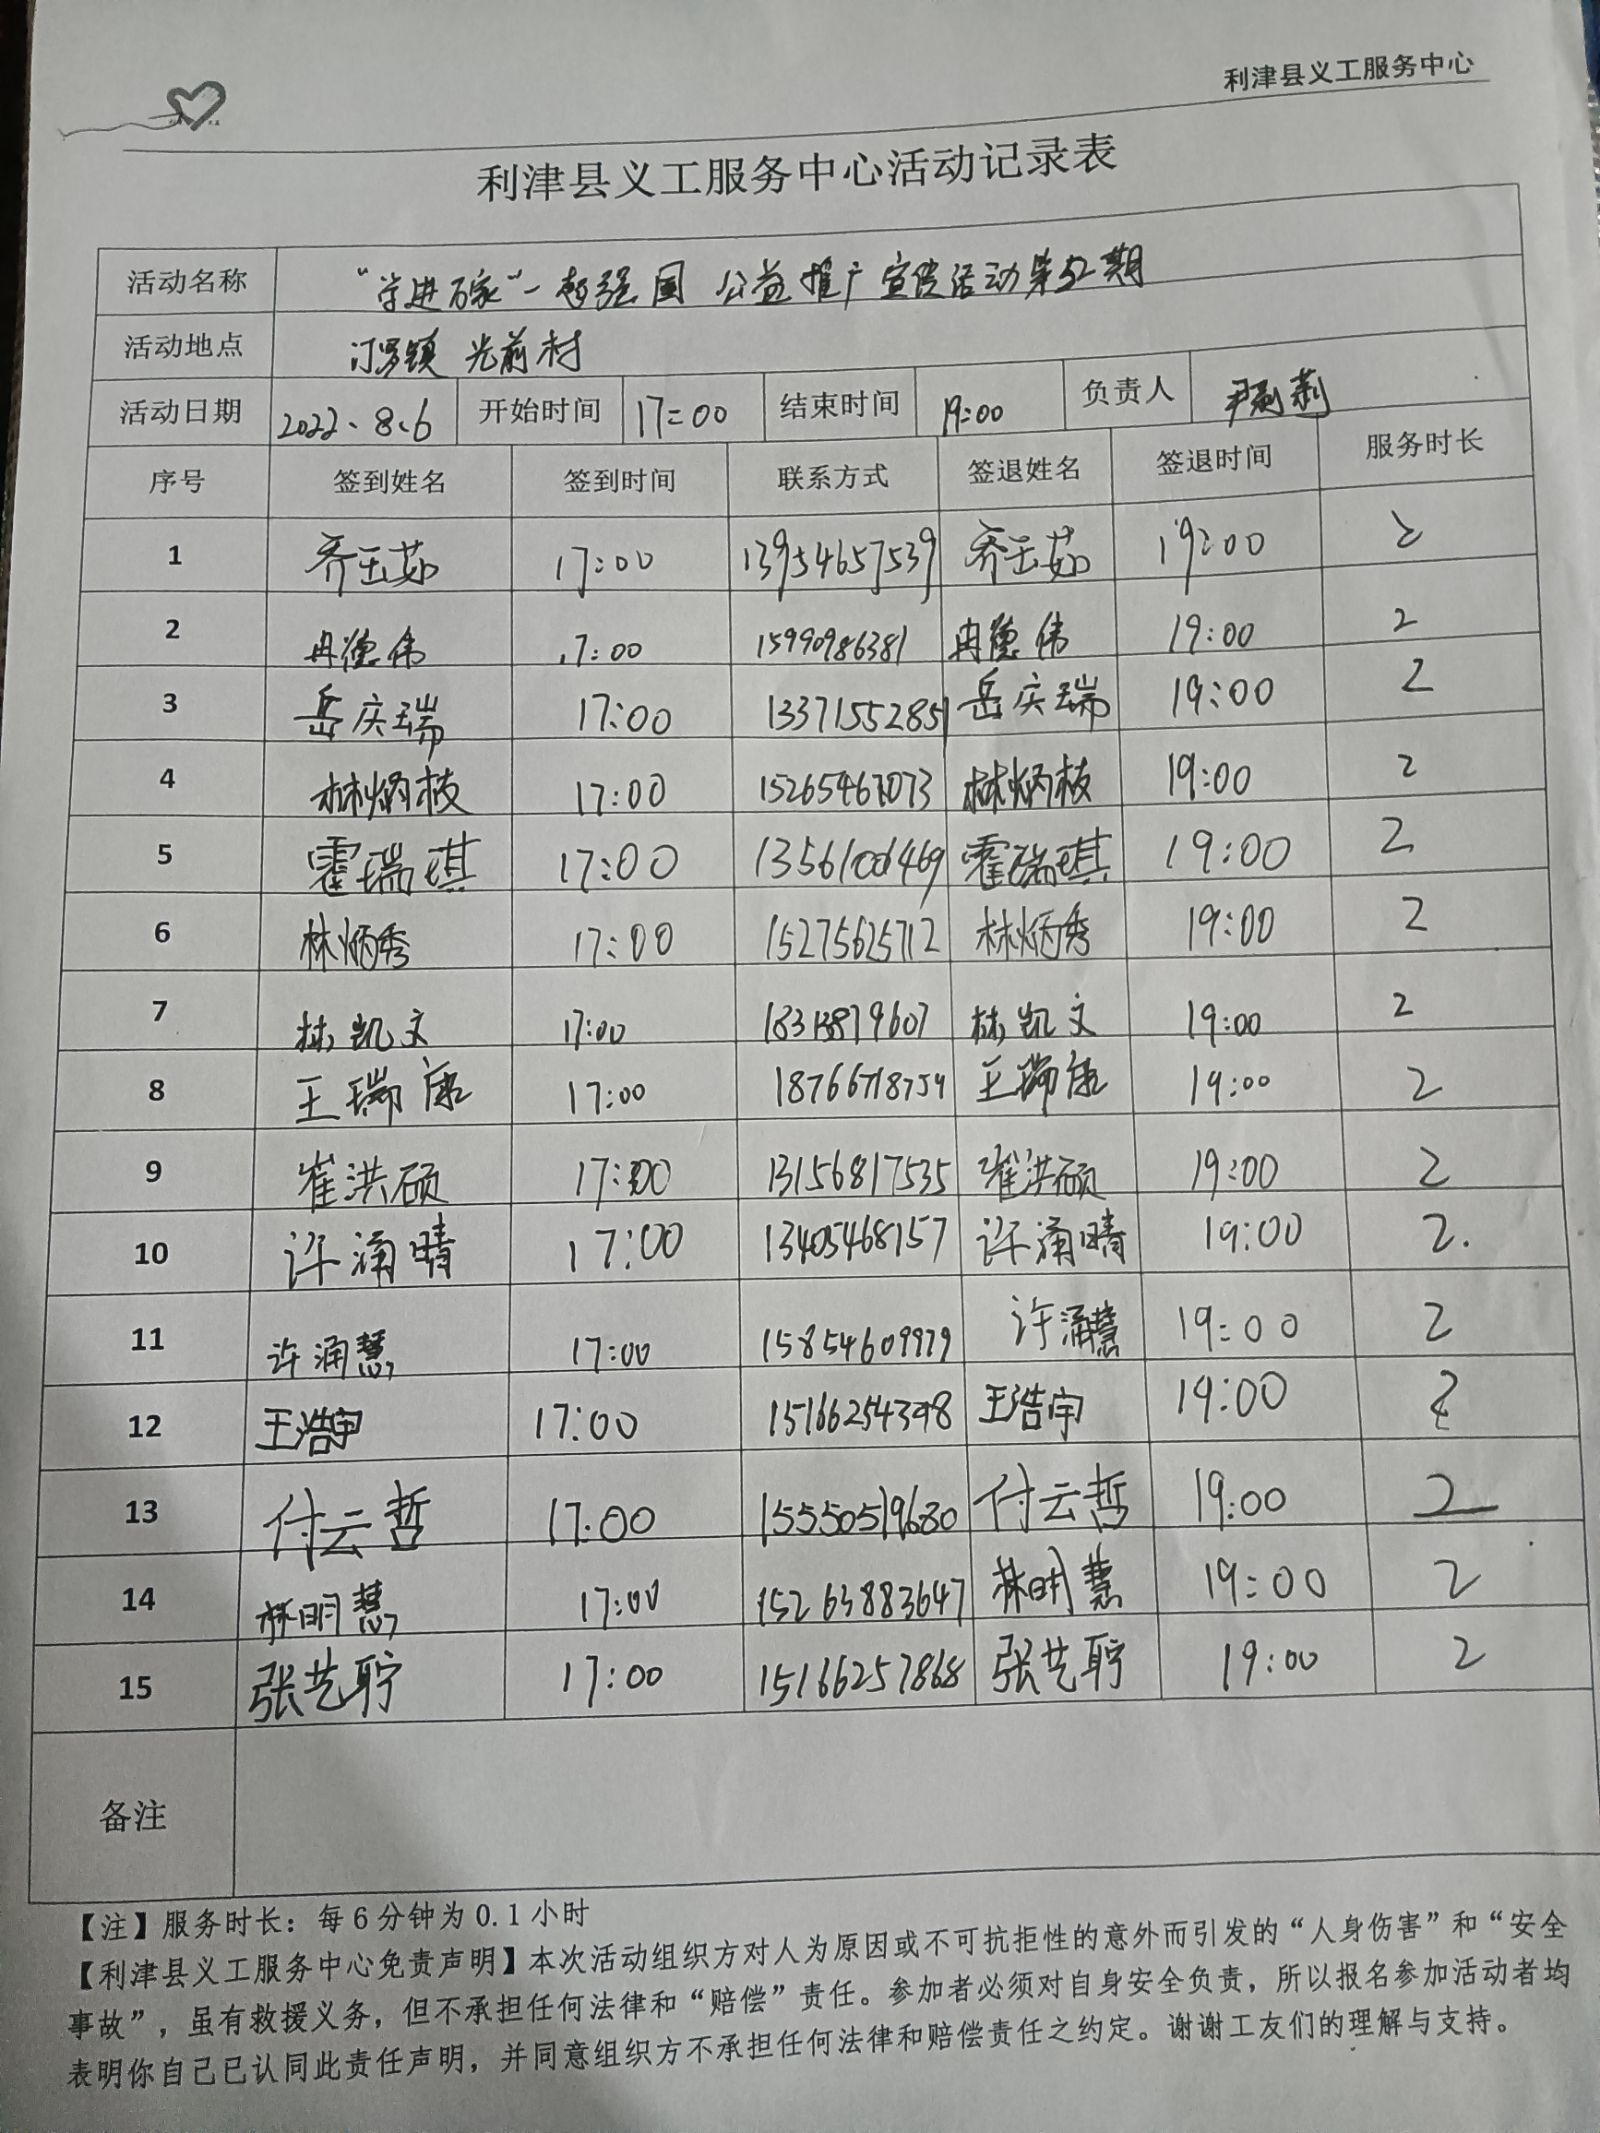 利津县义工服务中心
利津县义工服务中心活动记录表
活动名称 “学进万家”一起强国 公益推广宣传活动第52期
活动地点 汀罗镇 光前村
活动日期 2022、8、6 开始时间 17:00 结束时间 19:00 负责人 尹
序号 签到姓名 签到时间 联系方式 签退姓名 签退时间 服务时长
1 乔玉茹 17:00 13954657539 乔玉茹 19:00 2
2 冉德伟 17:00 15990986381 冉德伟 19:00 2
3 岳庆瑞 17:00 13371552851 岳庆瑞 19:00 2
4 林炳枝 17:00 林炳枝 19:00 2
5 霍瑞琪 17:00 13561006469 霍瑞琪 19:00 2
6 林炳秀 17:00 15275625712 林炳秀 19:00 2
7 林凯文 17:00 林凯文 19:00 2
8 王瑞康 17:00 18766718754 王瑞康 19:00 2
9 崔洪硕 17:00 13156817535 崔洪硕 19:00 2
10 许涌晴 17:00 13405468157 许涌晴 19:00 2.
11 许涌慧 17:00 15854609979 许涌慧 19:00 2
12 王浩宇 17:00 王浩宇 19:00 2
13 付云哲 17:00 15550519680 付云哲 19:00 2
14 林明慧 17:00 15263883647 林明慧 19:00 2
15 张艺聍 17:00 15166257868 张艺聍 19:00 2
备注
【注】服务时长：每6分钟为0.1小时
【利津县义工服务中心免责声明】本次活动组织方对人为原因或不可抗拒性的意外而引发的“人身伤害”和“安全
事故”，虽有救援义务，但不承担任何法律和“赔偿”责任。参加者必须对自身安全负责，所以报名参加活动者均
表明你自己已认同此责任声明，并同意组织方不承担任何法律和赔偿责任之约定。谢谢工友们的理解与支持。